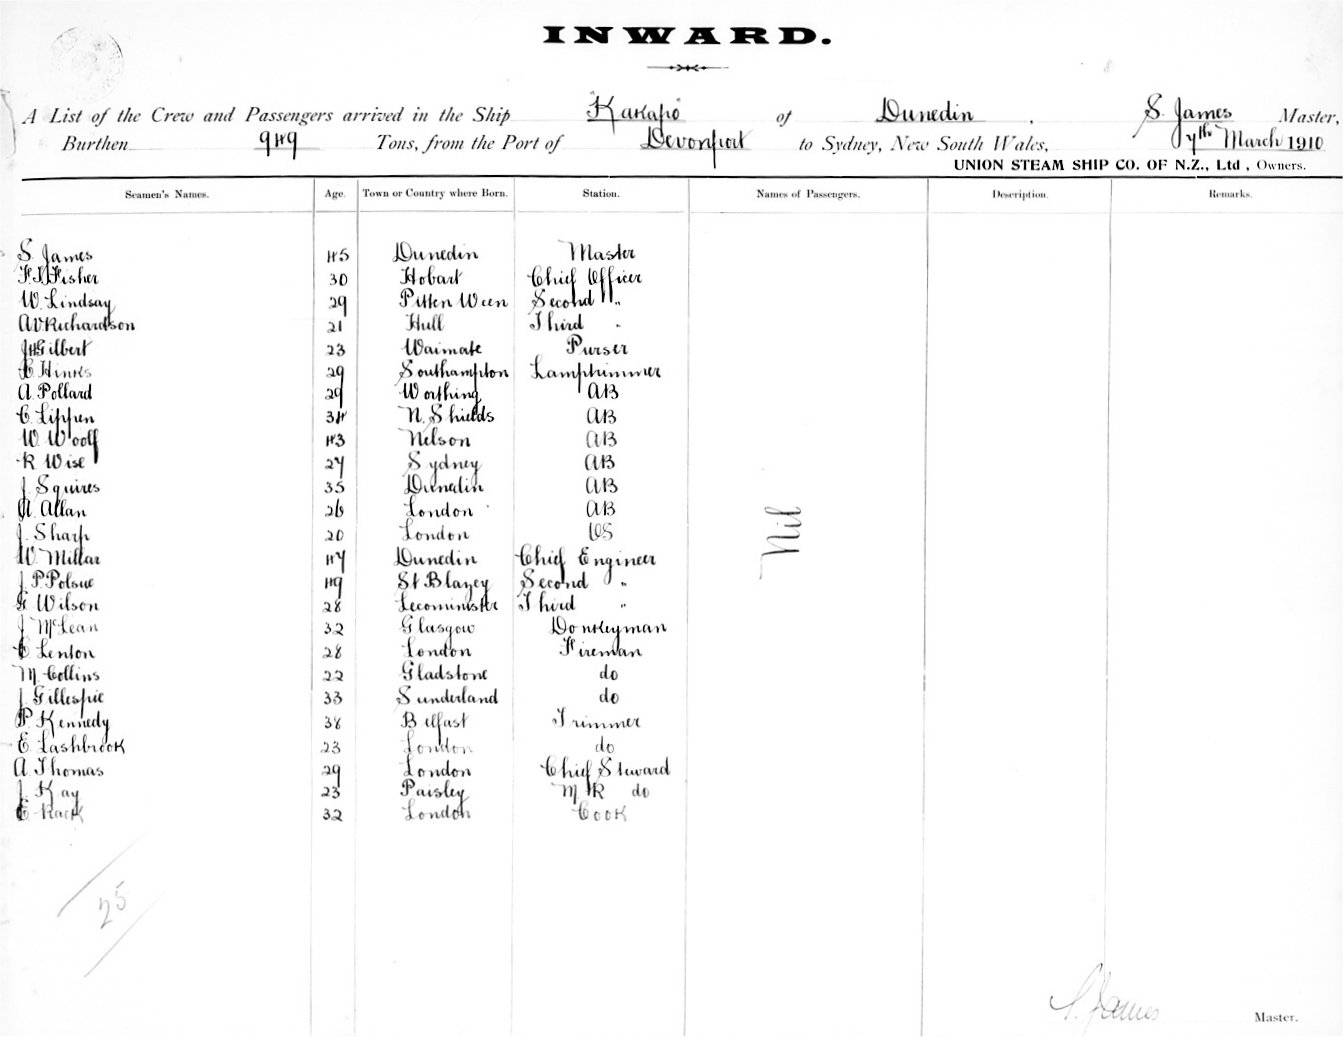 INWARD.
A List of the Crew and Passengers arrived in the Ship "Kakapo" of Dunedin, S. James Master,
Burthen 949 Tons, from the Port of Devonport to Sydney, New South Wales, 7th March 1910
UNION STEAM SHIP CO. OF N.Z., Ltd, Owners.
Seamen's Names. Age. Town or Country where Born. Station. Names of Passengers. Description. Remarks.
S. James 45 Dunedin Master
Fisher 30 Hobart Chief Officer
W. Lindsay 29 Pitten Ween Second "
A V Richardson 21 Hull Third "
Gilbert 23 Waimate Purser
Hinks 29 Southampton Lamptrimmer
A. Pollard 29 Worthing AB
C. Lippen 34 N. Shields AB
W. Woolf 43 Nelson AB
R Wise 27 Sydney AB
J. Squires 35 Dunedin AB
Allan 26 London AB
J. Sharp 20 London OS
W. Millar 47 Dunedin Chief Engineer
J. P. Polsue 49 St Blazey Second "
G Wilson 28 Leominister Third "
J McLean 32 Glasgow Donkeyman
C Lenton 28 London Fireman
M. Collins 22 Gladstone do
J Gillespie 33 Sunderland do
P. Kennedy 38 Belfast Trimmer
E. Lashbrook 23 London do
A. Thomas 29 London Chief Steward
J. Kay 23 Paisley M R do
E Rack 32 London Cook
Nil
25
S. James Master.